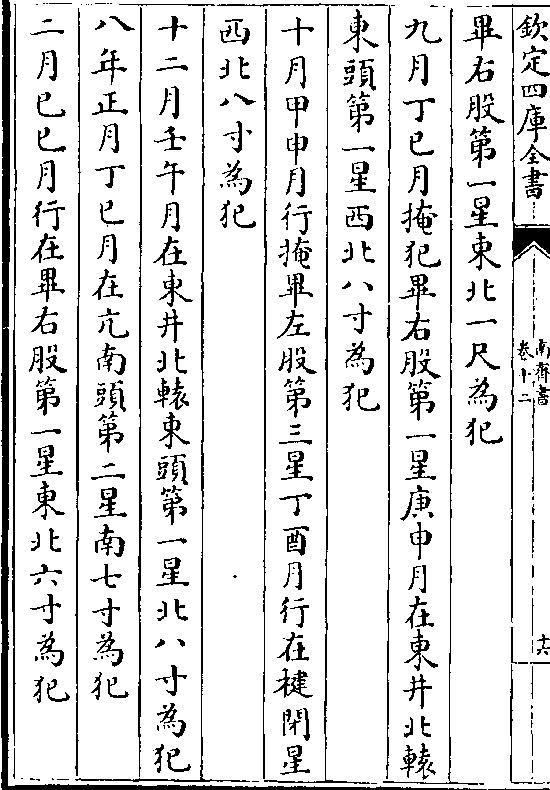 欽定四庫全書
南齊書
卷十二
十六
畢右股第一星東北一尺為犯
九月丁巳月掩犯畢右股第一星庚申月在東井北轅
東頭第一星西北八寸為犯
十月甲申月行掩畢左股第三星丁酉月行在楗閉星
西北八寸為犯
十二月壬午月在東井北轅東頭第一星北八寸為犯
八年正月丁巳月在亢南頭第二星南七寸為犯
二月己巳月行在畢右股第一星東北六寸為犯